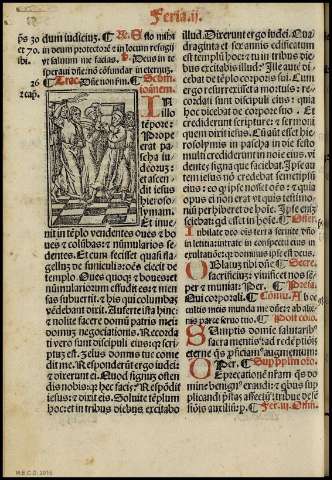 Feria.ij.
ps 30
et 70.
ibi.
26
2 cap.
dum iudiciuz. Esto mihi
in deum protectorē et in locum refugij
vt saluum me facias. Deus in te
speraui dn̄e: nō cōfundar in eternuz.
Trac. Dn̄e non sm̄. Scd̄m
ioānem.
IN
illo
tēpore:
Prope
erat pa
scha iu
deoruz:
et ascen
dit iesus
hieroso
lymam.
Et inue
nit in tēplo vendentes oues et bo
ues et colūbas: et nūmularios se
dentes. Et cum fecisset quasi fla
gelluz de funiculis: oēs eiecit de
templo. Oues quoqz et boues: et
nūmulariorum effudit es: et men
sas subuertit. Et his qui columbas
vēdebant dixit. Auferte ista hinc:
et nolite facere domū patris mei
domuz negociationis. Recorda
ti vero sunt discipuli eius: qz scri
ptuz est. Zelus domus tue come
dit me. Respōderūt ergo iudei:
et dixerunt ei. Quod signuz osten
dis nobis: qz hec facis? Respōdit
iesus: et dixit eis. Soluite tēplum
hoc: et in tribus diebus excitabo
illud. Dixerunt ergo iudei. Qua
draginta et sex annis edificatum
est templū hoc: et tu in tribus die
bus excitabis illud? Ille autē di
cebat de tēplo corporis sui. Cum
ergo resurrexisset a mortuis: re
cordati sunt discipuli eius: quia
hoc dicebat de corpore suo. Et
crediderunt scripture: et sermoni
quem dixit iesus. Cū aūt esset hie
rosolymis in pascha in die festo
multi crediderunt in noīe eius. vi
dentes signa que faciebat. Ipse au
tem iesus nō credebat semetipsuz
eis: eo qz ipse nosset oēs: et quia
opus ei non erat vt quis testimo
niuz perhiberet de hoīe. Ipse enīz
sciebat: qd esset in hoīe. Offer.
Iubilate deo oīs terra seruite dn̄o
in letitia: intrate in conspectu eius in
exultatiōe: qz dominus ipse est deus.
Oblatuz tibi dn̄e Secre.
sacrificiuz: viuificet nos sem
per et muniat. Per. Prefa.
Qui corporali. Cōmu. Ab oc
cultis meis munda me dn̄e: et ab alie
nis parce seruo tuo. Postcōio.
Sumptis domīe salutaribꝰ
sacra mentis: ad redēptiōis
eterne qs pficiam augmentum
Per. Sup pplm oro.
Deprecationē nr̄am qs do
mine benignꝰ exaudi: et qbus sup
plicandi pstas affectū: tribue de
fēsiōis auxiliūz. p. Fer. iij. Offm̄.
M.E.C.D. 2016